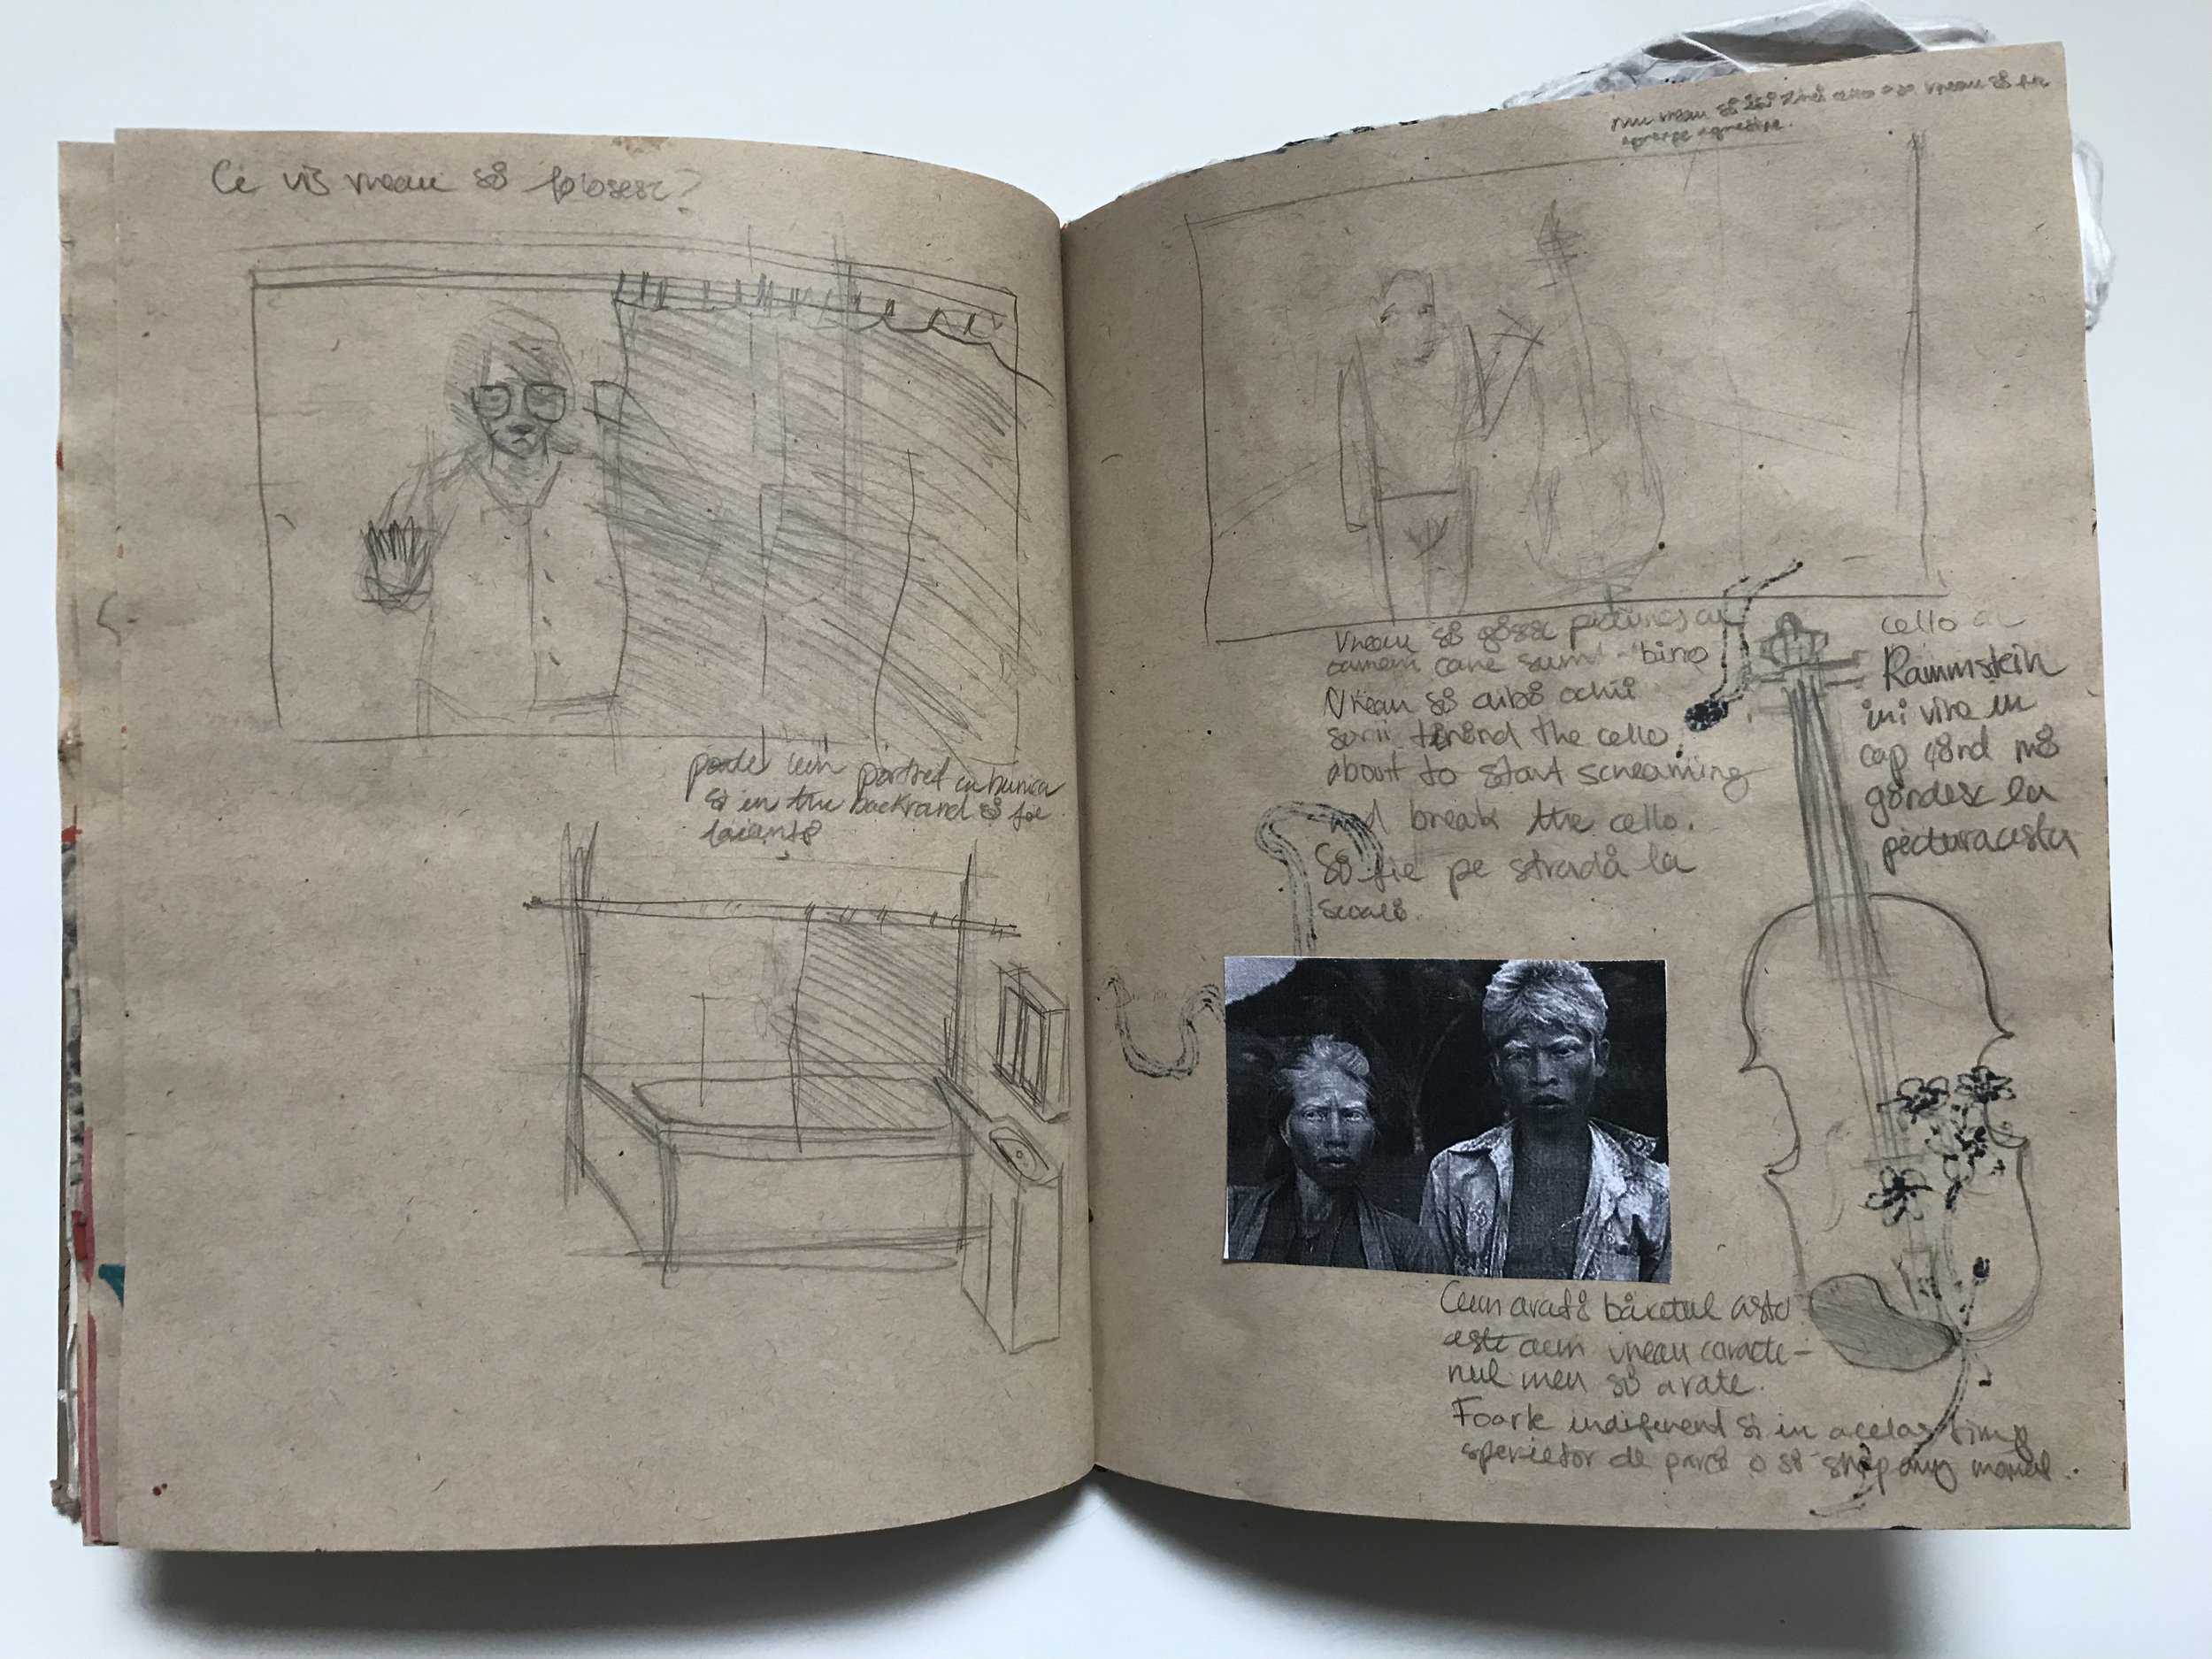 Ce vis vreau să folosesc?
poate un portret cu bunica
și in the backrand să fie
faianță
nu vreau să vreau să fie
aproape agresive.
vreau să găsesc pictures cu
oameni care sunt
Vreau să aibă ochii
ținând the cello.
about to start screaming
and break the cello.
Să fie pe stradă la
școală.
cello
Rammstein
îmi vine în
cap când mă
gândesc la
pictura asta
Cum arată băiatul asta
este cum vreau caracte-
rul meu să arate.
Foarte indiferent și in acelas timp
sperietor de parcă o să snap any moment.